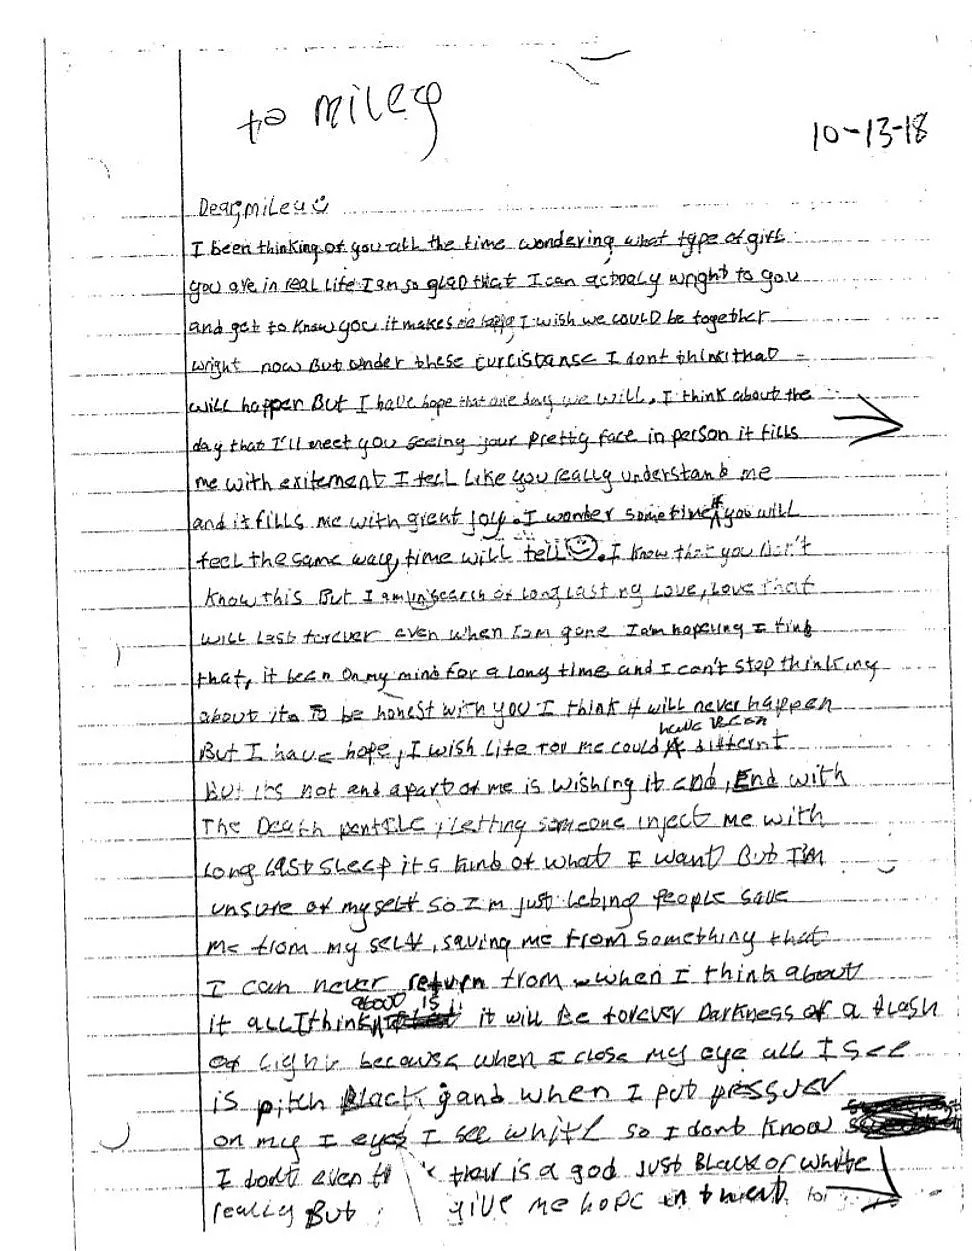 to miley
10-13-18
Dear, miley
I been thinking of you all the time wondering what type of girl
you are in real life I am so glad that I can actualy wright to you
and get to know you it makes me happy I wish we could be together
wright now But under these curcistanse I dont think that
will happen But I have hope that one day we will. I think about the
day that I'll meet you seeing your pretty face in person it fills
me with exitement I feel Like you really understand me
and it fills me with great joy. I wonder sometime if you will
feel the same way, time will tell. I know that you don't
know this But I am in search of long lasting Love, Love that
will last forever even when I am gone I am hopeing I find
that, it been on my mind for a long time and I can't stop thinking
about it. To be honest with you I think it will never happen
But I have hope, I wish life for me could have been different
But its not and a part of me is wishing it end, End with
The Death pentlle, letting someone inject me with
long last sleep it's kind of what I want But I'm
unsure of my self so I'm just leting people save
me from my self, saving me from something that
I can never return from when I think about
it all I think about is it will Be forever Darkness of a flash
of light because when I close my eye all I see
is pitch Black and when I put pressur
on my I eyes I see white so I dont know
I dont even thin is a god Just Black or white
really But give me hope in